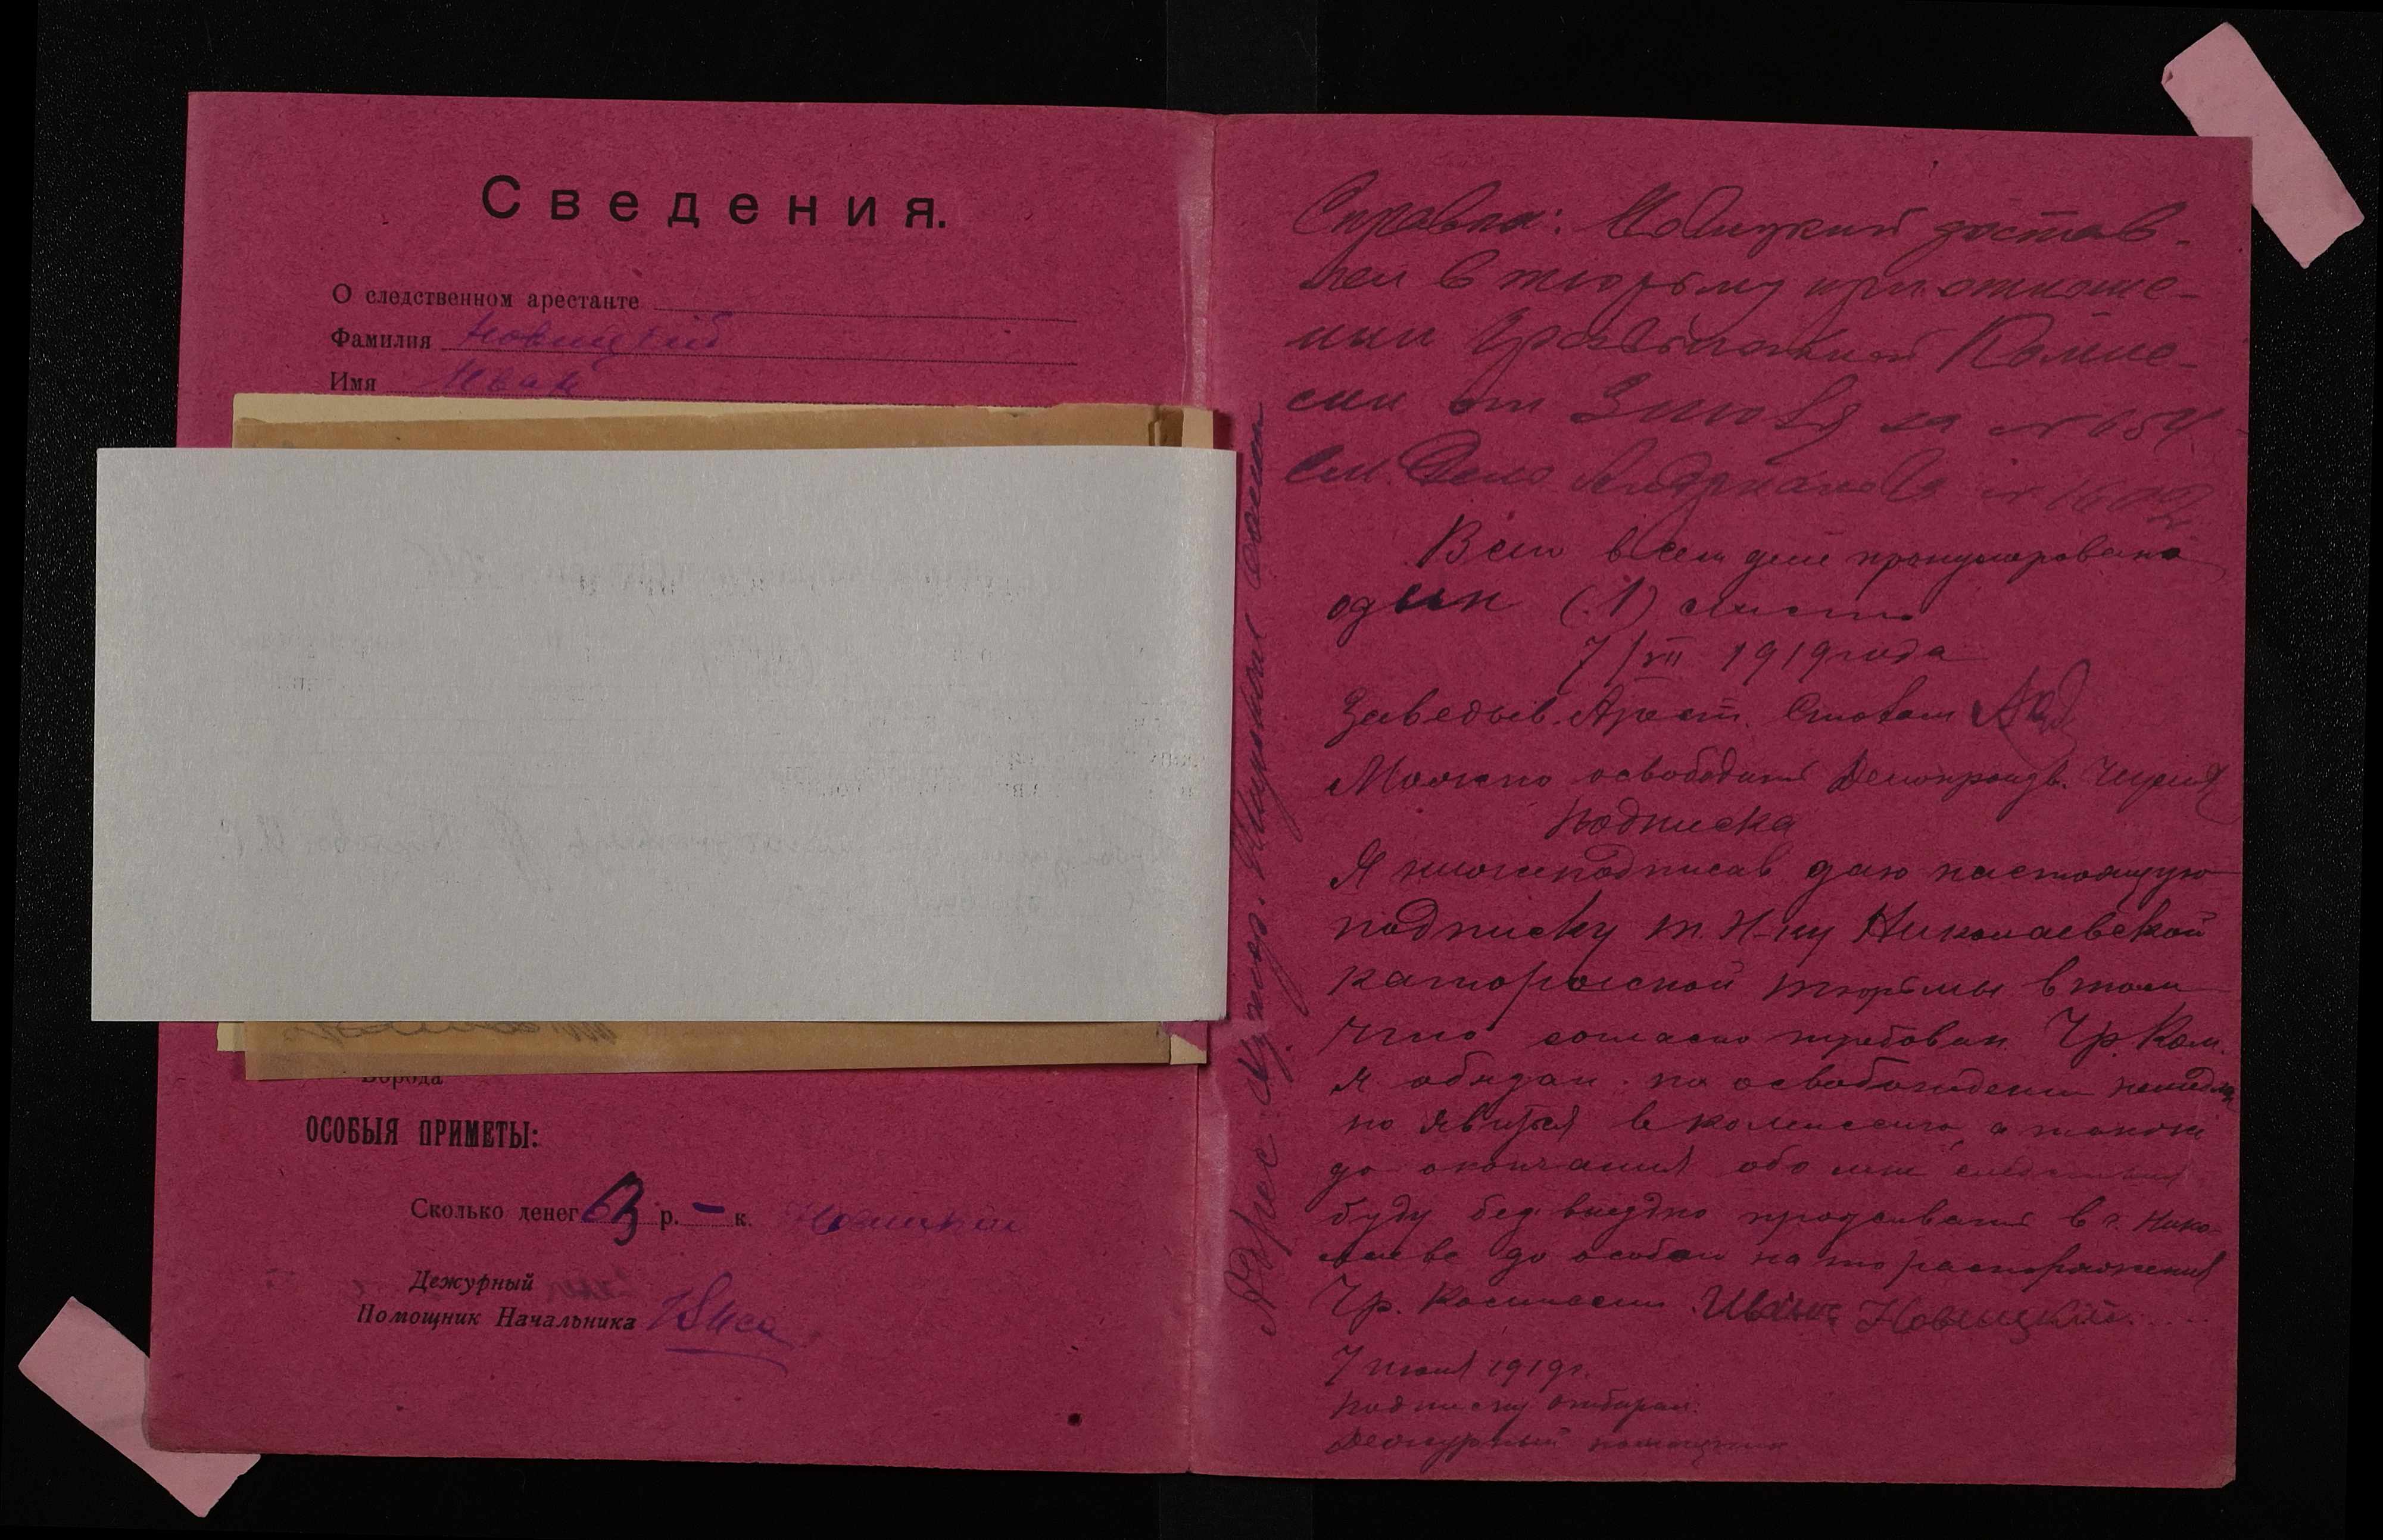 Сведения.
О следственном арестанте
Фамилия Новицкий
Имя Иван
Борода
ОСОБЫЯ ПРИМЕТЫ:
Сколько денег 63 р. – к. Новицкий
Дежурный
Помощник Начальника
Адрес
Справка: Новицкий достав-
лен в тюрьму при отноше-
нии Чрезвычайной Комис-
сии от за №
см. Дело Андрианова № 1602
Всего в сем деле пронумеровано
один (1) листъ
7/VII 1919 года
Заведыв. Арест. Столом
Можно освободить Делопроизв.
Подписка
Я нижеподписав даю настоящую
подписку т. Н-ку Николаевской
каторжной тюрьмы в том
что согласно требован. Чр. Ком.
я обязан по освобождении немедлен
но явиться в комиссию, а также
до окончания обо мне следствия
буду безвыездно проживать в г. Нико-
лаеве до особаго на то распоряжения
Чр. Комиссии. Иванъ Новицкий
7 июля 1919 г.
Подписку отбирал:
Дежурный помощник